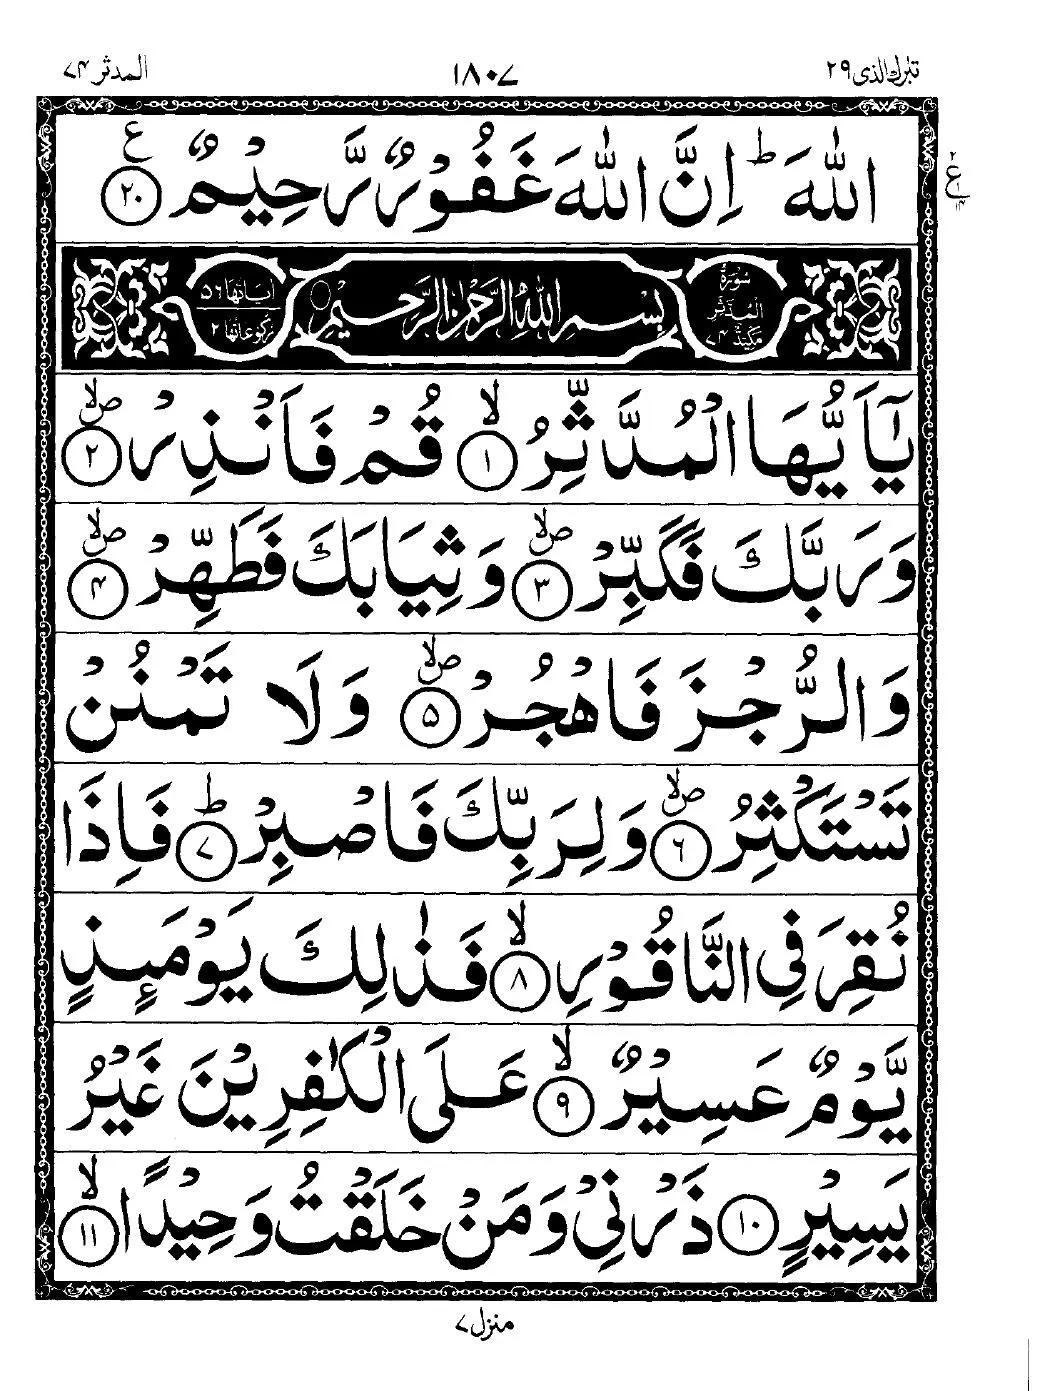 تبٰرك الذى ٢٩
١٨٠٧
المدثر ٧٤
اللّٰهَ ؕ اِنَّ اللّٰهَ غَفُوْرٌ رَّحِيْمٌ ۝٢٠ ع
٢
ع
١٤
سُوْرَةُ
الْمُدَّثِّر
مَكِّيَّة ٧٤
بِسْمِ اللّٰهِ الرَّحْمٰنِ الرَّحِيْمِ
اٰيَاتُهَا ٥٦
رُكُوْعَاتُهَا ٢
يٰۤاَيُّهَا الْمُدَّثِّرُ ۙ‏۝١ قُمْ فَاَنْذِرْ ۪ۙ‏۝٢
وَرَبَّكَ فَكَبِّرْ ۪ۙ‏۝٣ وَثِيَابَكَ فَطَهِّرْ ۪ۙ‏۝٤
وَالرُّجْزَ فَاهْجُرْ ۪ۙ‏۝٥ وَلَا تَمْنُنْ
تَسْتَكْثِرُ ۪ۙ‏۝٦ وَلِرَبِّكَ فَاصْبِرْ ؕ‏۝٧ فَاِذَا
نُقِرَ فِى النَّاقُوْرِ ۙ‏۝٨ فَذٰلِكَ يَوْمَئِذٍ
يَّوْمٌ عَسِيْرٌ ۙ‏۝٩ عَلَى الْكٰفِرِيْنَ غَيْرُ
يَسِيْرٍ ۝١٠ ذَرْنِىْ وَمَنْ خَلَقْتُ وَحِيْدًا ۙ‏۝١١
منزل ٧